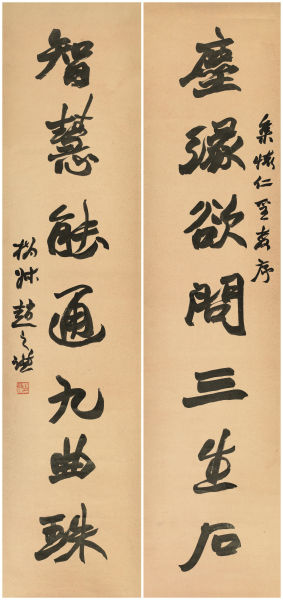 塵緣欲問三生石
集懷仁聖教序
智慧能通九曲珠
松山趙之璞